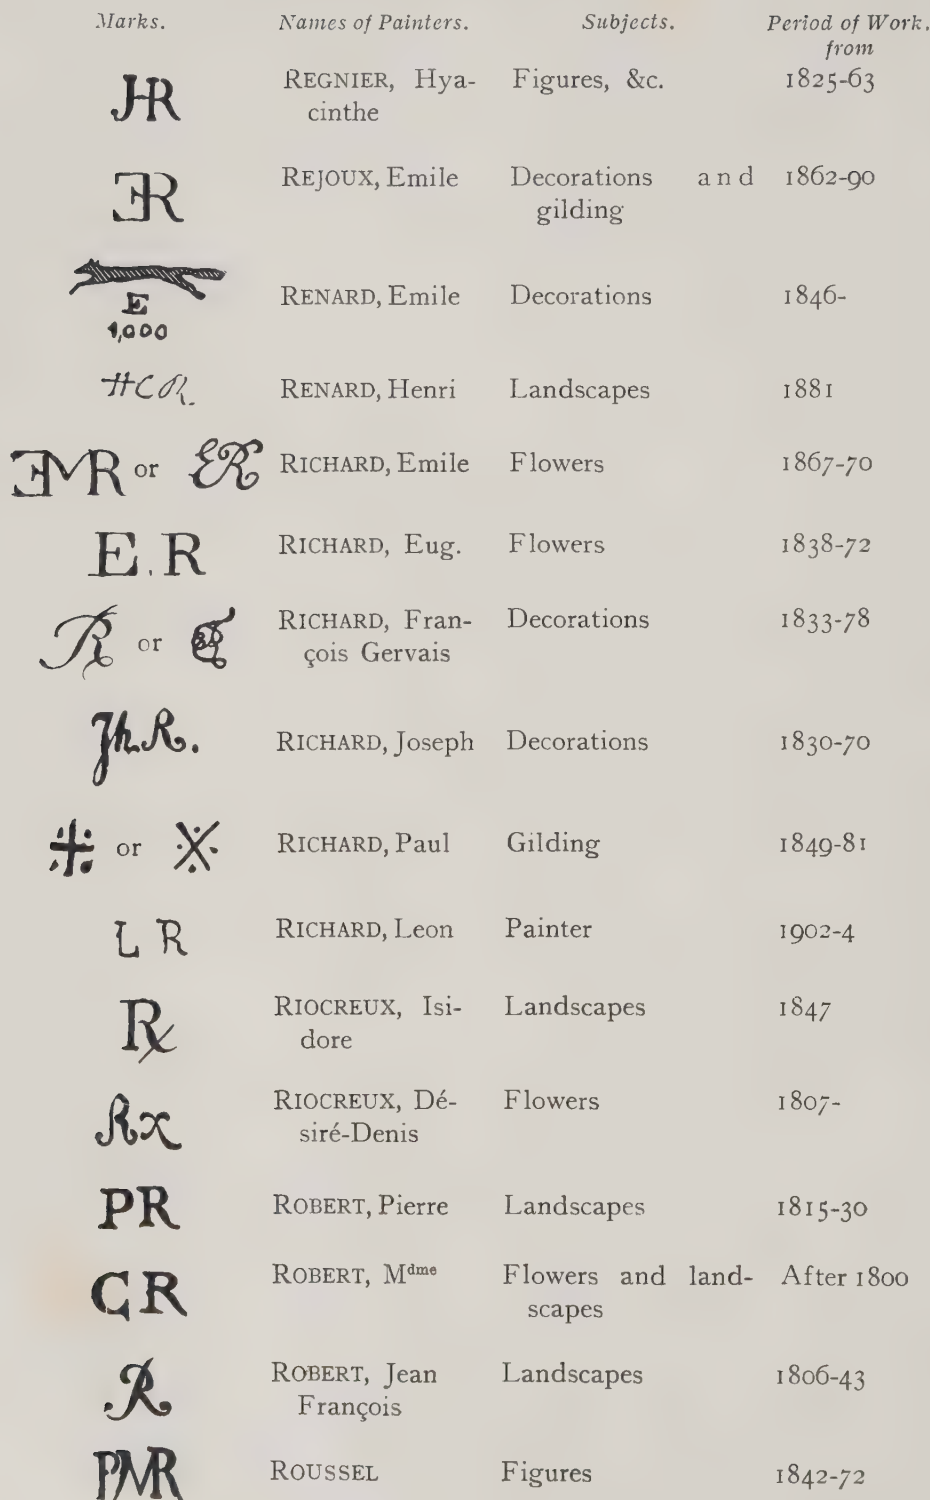 Marks. Names of Painters. Subjects. Period of Work.
from
JHR REGNIER, Hya- Figures, &c. 1825-63
cinthe
ER REJOUX, Emile Decorations and 1862-90
gilding
E
1,000
RENARD, Emile Decorations 1846-
HCR. RENARD, Henri Landscapes 1881
EMR or ER RICHARD, Emile Flowers 1867-70
E.R RICHARD, Eug. Flowers 1838-72
R or RICHARD, Fran- Decorations 1833-78
çois Gervais
Jh.R. RICHARD, Joseph Decorations 1830-70
or RICHARD, Paul Gilding 1849-81
L R RICHARD, Leon Painter 1902-4
Rx RIOCREUX, Isi- Landscapes 1847
dore
Rx RIOCREUX, Dé- Flowers 1807-
siré-Denis
PR ROBERT, Pierre Landscapes 1815-30
CR ROBERT, Mdme Flowers and land- After 1800
scapes
R ROBERT, Jean Landscapes 1806-43
François
PMR ROUSSEL Figures 1842-72